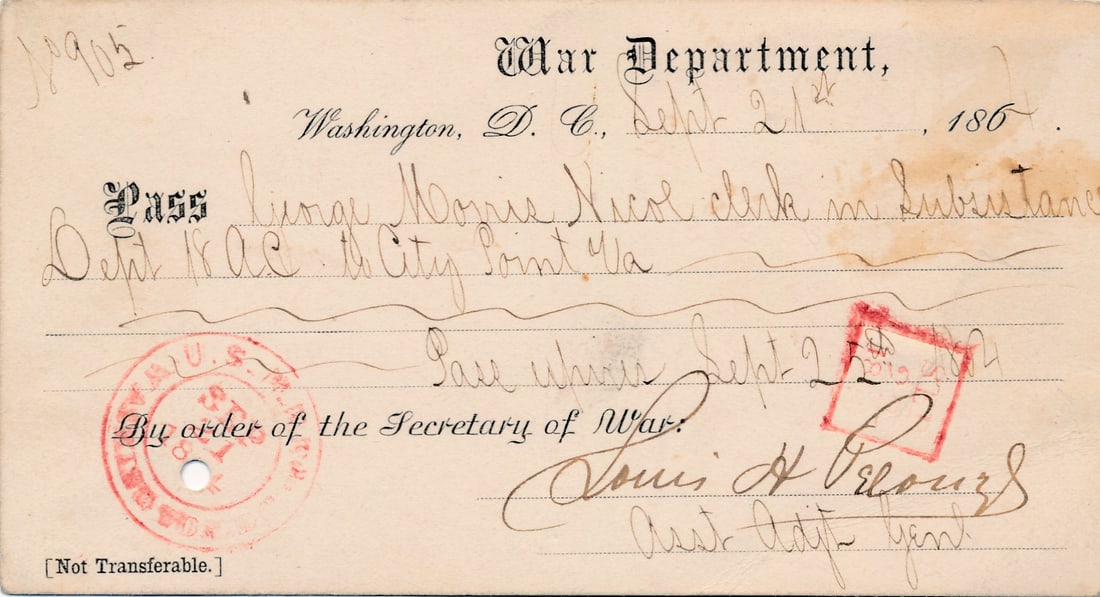 No 905
War Department,
Washington, D. C., Sept 21st, 1864.
Pass George Morris Nicol clerk in Subsistance
Dept 18 A.C. to City Point Va
Pass expires Sept 25th 1864
By order of the Secretary of War:
Louis H Pelouze
Asst Adjt Genl
[Not Transferable.]
U. S. M
SEP 21